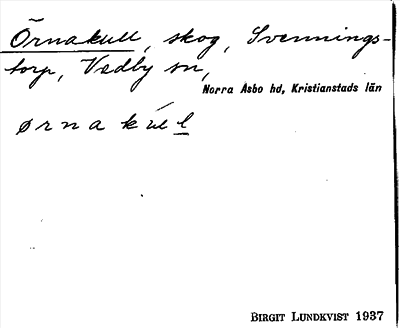 Örnakull, skog, Svennings-
torp, Vedby sn,
Norra Åsbo hd, Kristianstads län
ørnakúl̲
BIRGIT LUNDKVIST 1937